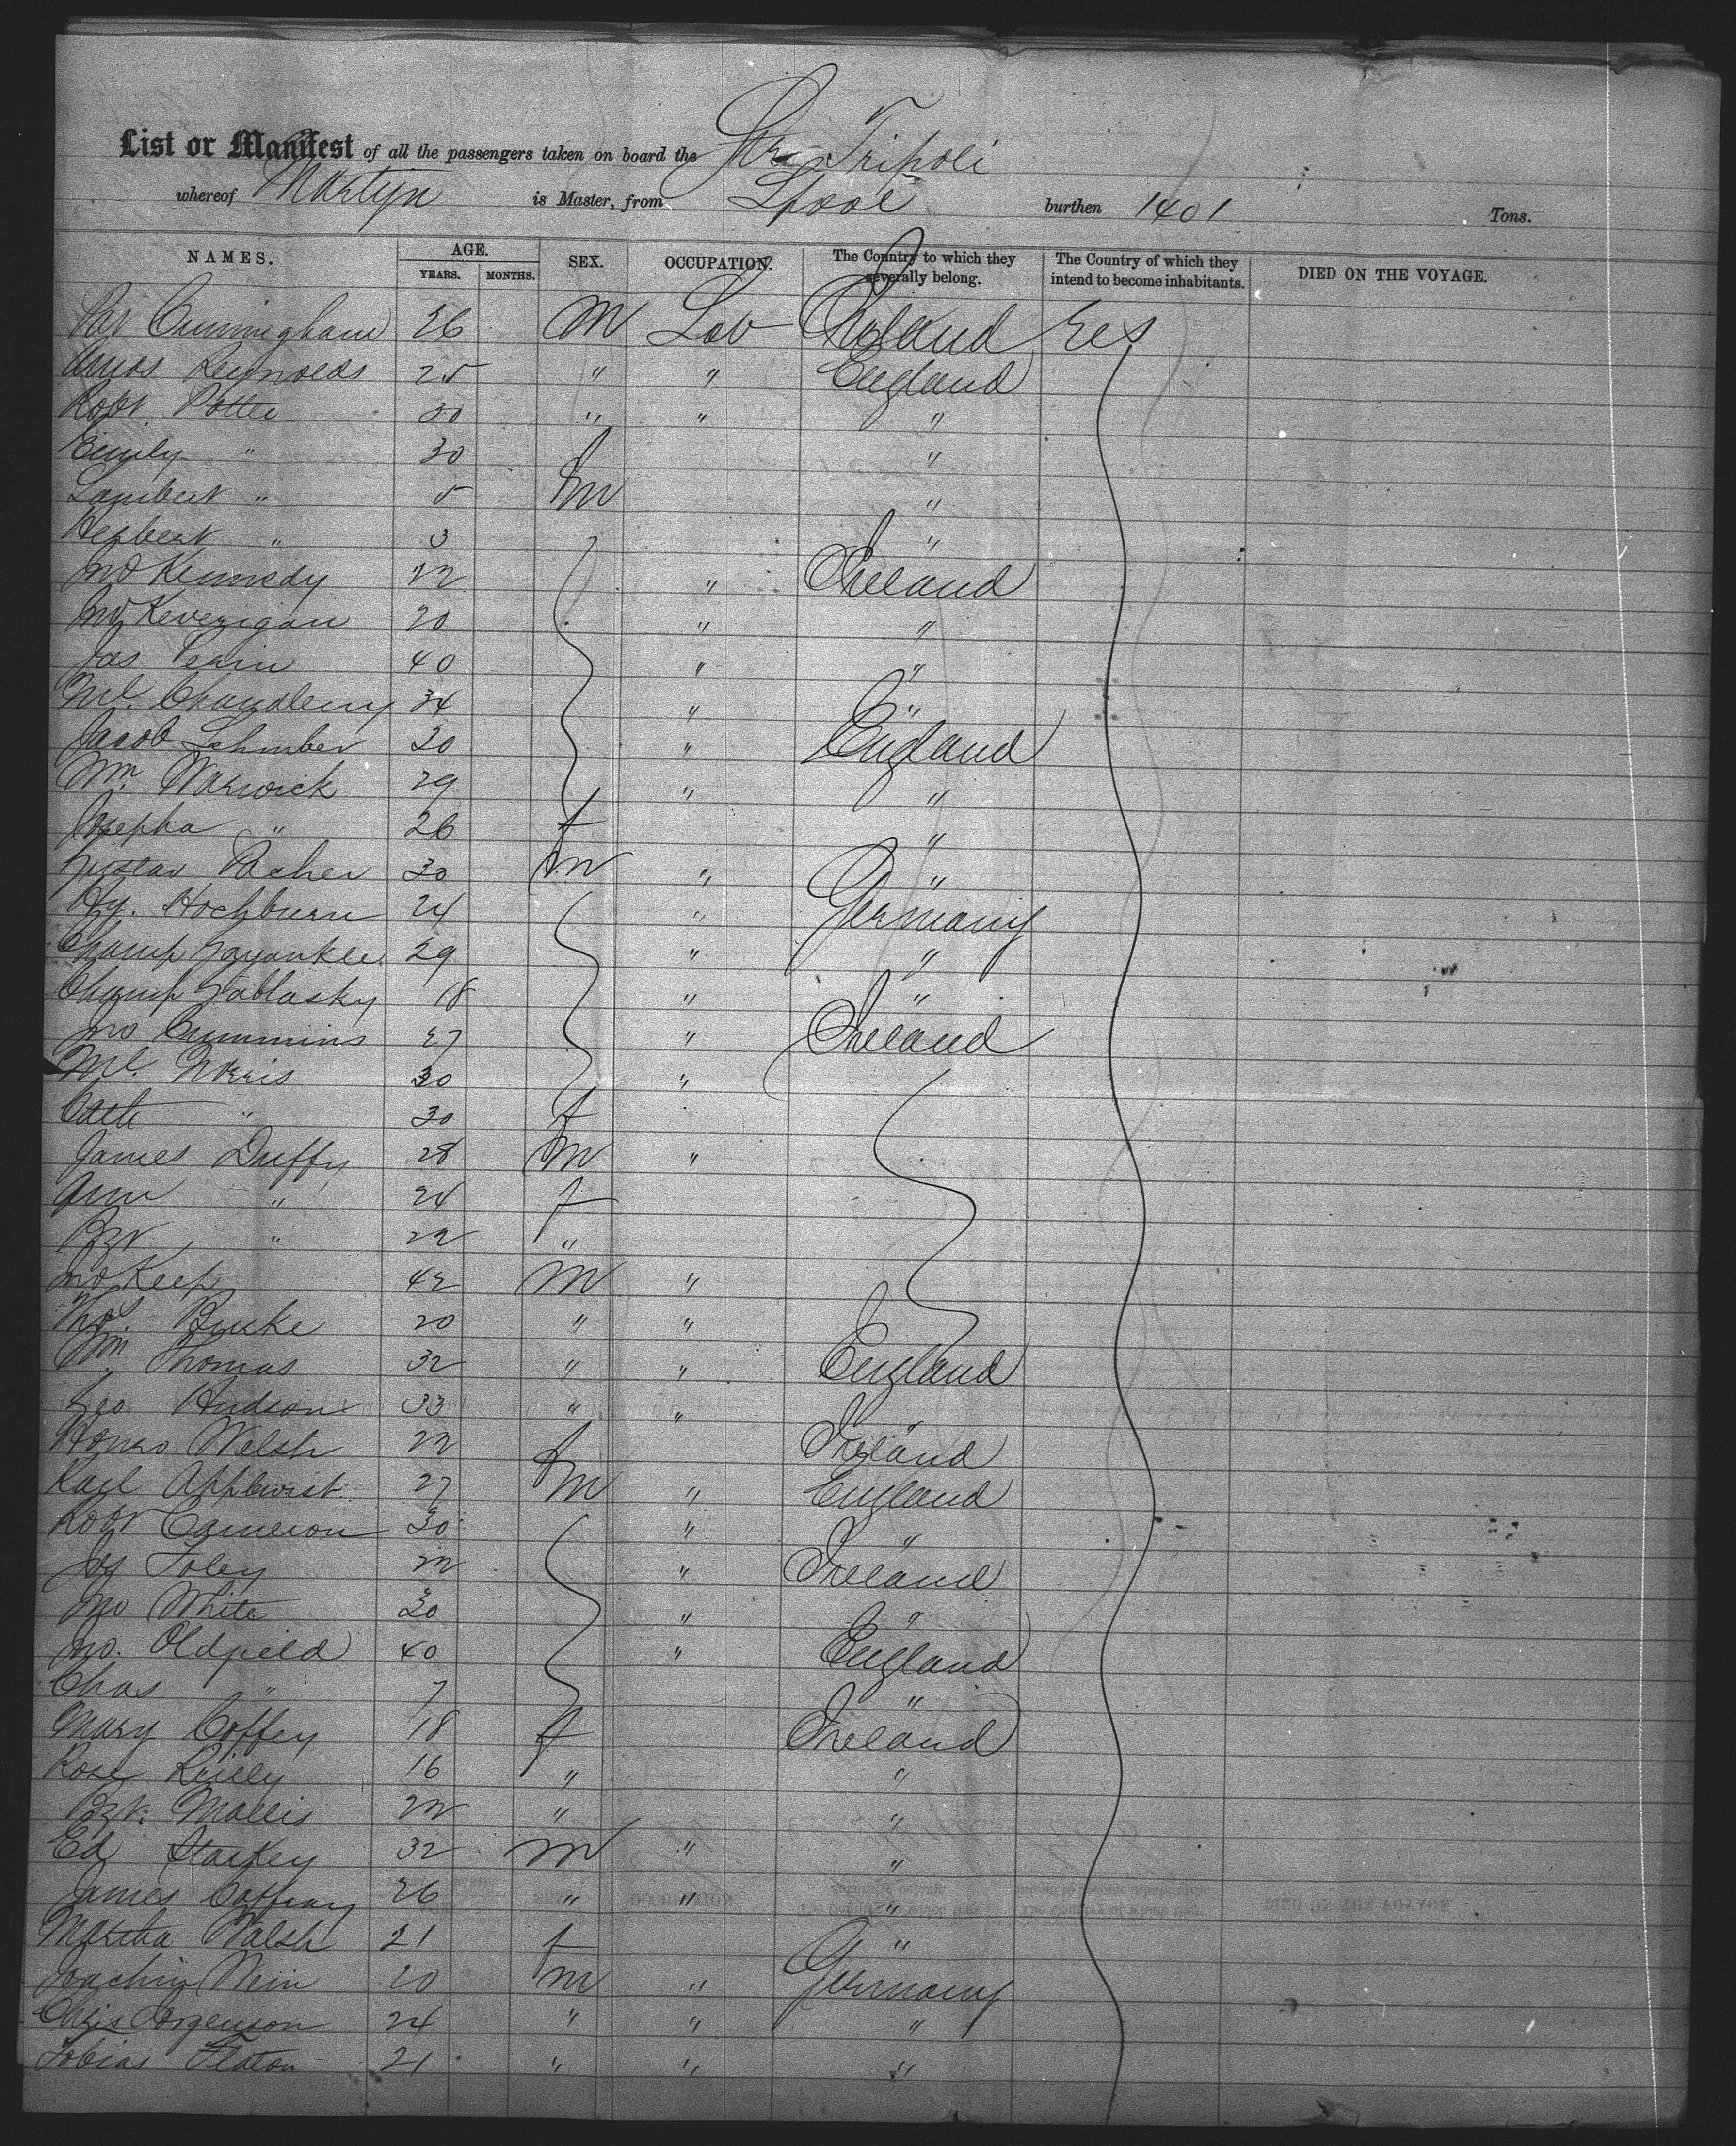 List or Manifest of all the passengers taken on board the Str Tripoli
whereof Martyn is Master, from Lpool burthen 1401 Tons.
NAMES. AGE. YEARS. MONTHS. SEX. OCCUPATION. The Country to which they severally belong. The Country of which they intend to become inhabitants. DIED ON THE VOYAGE.
Pat Cunningham 26 M Lab Ireland U S
Amos Reynolds 25 " " England
Robt Potter 30 " " "
Emily " 30 f "
Lambert " 5 m "
Herbert " 3 "
Jno Kennedy 22 " Ireland
Jno Keverigan 20 " "
Jas 40 " "
Ml. 34 " "
Jacob 30 " England
Wm. Warwick 29 " "
Josepha " 26 f "
Gustav 30 m " "
Hy. Hochburn 24 " Germany
29 " "
18 " "
Jno Cummins 27 " Ireland
Ml. Norris 30 "
Cath " 30 f
James Duffy 28 m "
Ann " 24 f
Bgt " 22 "
Jno Keep 42 m "
Thos. Burke 20 " "
Wm. Thomas 32 " " England
Geo Hudson 33 " "
Honor Welsh 22 f Ireland
Karl 27 m " England
Robt Cameron 30 " "
Jas Foley 22 " Ireland
Jno White 30 " "
Jno. Oldfield 40 " England
Chas " 7 "
Mary Coffey 18 f Ireland
Rose Reilly 16 " "
Bgt. Mallis 22 " "
Ed Starkey 32 m " "
James 26 " " "
Martha Walsh 21 f "
Joachim Wein 20 m " Germany
Chris Jorgenson 24 " " "
Tobias 21 " " "